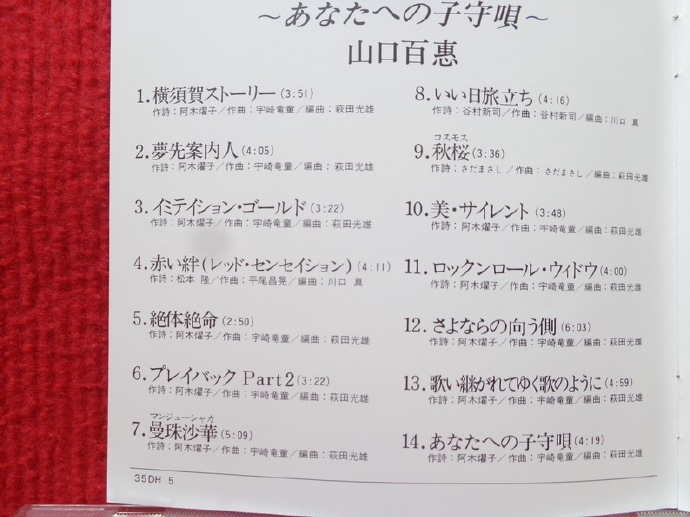 ～あなたへの子守唄～
山口百惠
1.横須賀ストーリー(3:51)
作詩：阿木燿子／作曲：宇崎竜童／編曲：萩田光雄
2.夢先案内人(4:05)
作詩：阿木燿子／作曲：宇崎竜童／編曲：萩田光雄
3.イミテイション・ゴールド(3:22)
作詩：阿木燿子／作曲：宇崎竜童／編曲：萩田光雄
4.赤い絆(レッド・センセイション)(4:11)
作詩：松本 隆／作曲：平尾昌晃／編曲：川口 真
5.絶体絶命(2:50)
作詩：阿木燿子／作曲：宇崎竜童／編曲：萩田光雄
6.プレイバック Part2(3:22)
作詩：阿木燿子／作曲：宇崎竜童／編曲：萩田光雄
マンジューシャカ
7.曼珠沙華(5:09)
作詩：阿木燿子／作曲：宇崎竜童／編曲：萩田光雄
8.いい日旅立ち(4:16)
作詩：谷村新司／作曲：谷村新司／編曲：川口 真
コスモス
9.秋桜(3:36)
作詩：さだまさし／作曲：さだまさし／編曲：萩田光雄
10.美・サイレント(3:48)
作詩：阿木燿子／作曲：宇崎竜童／編曲：萩田光雄
11.ロックンロール・ウィドウ(4:00)
作詩：阿木燿子／作曲：宇崎竜童／編曲：萩田光雄
12.さよならの向う側(6:03)
作詩：阿木燿子／作曲：宇崎竜童／編曲：萩田光雄
13.歌い継がれてゆく歌のように(4:59)
作詩：阿木燿子／作曲：宇崎竜童／編曲：萩田光雄
14.あなたへの子守唄(4:19)
作詩：阿木燿子／作曲：宇崎竜童／編曲：萩田光雄
35DH 5